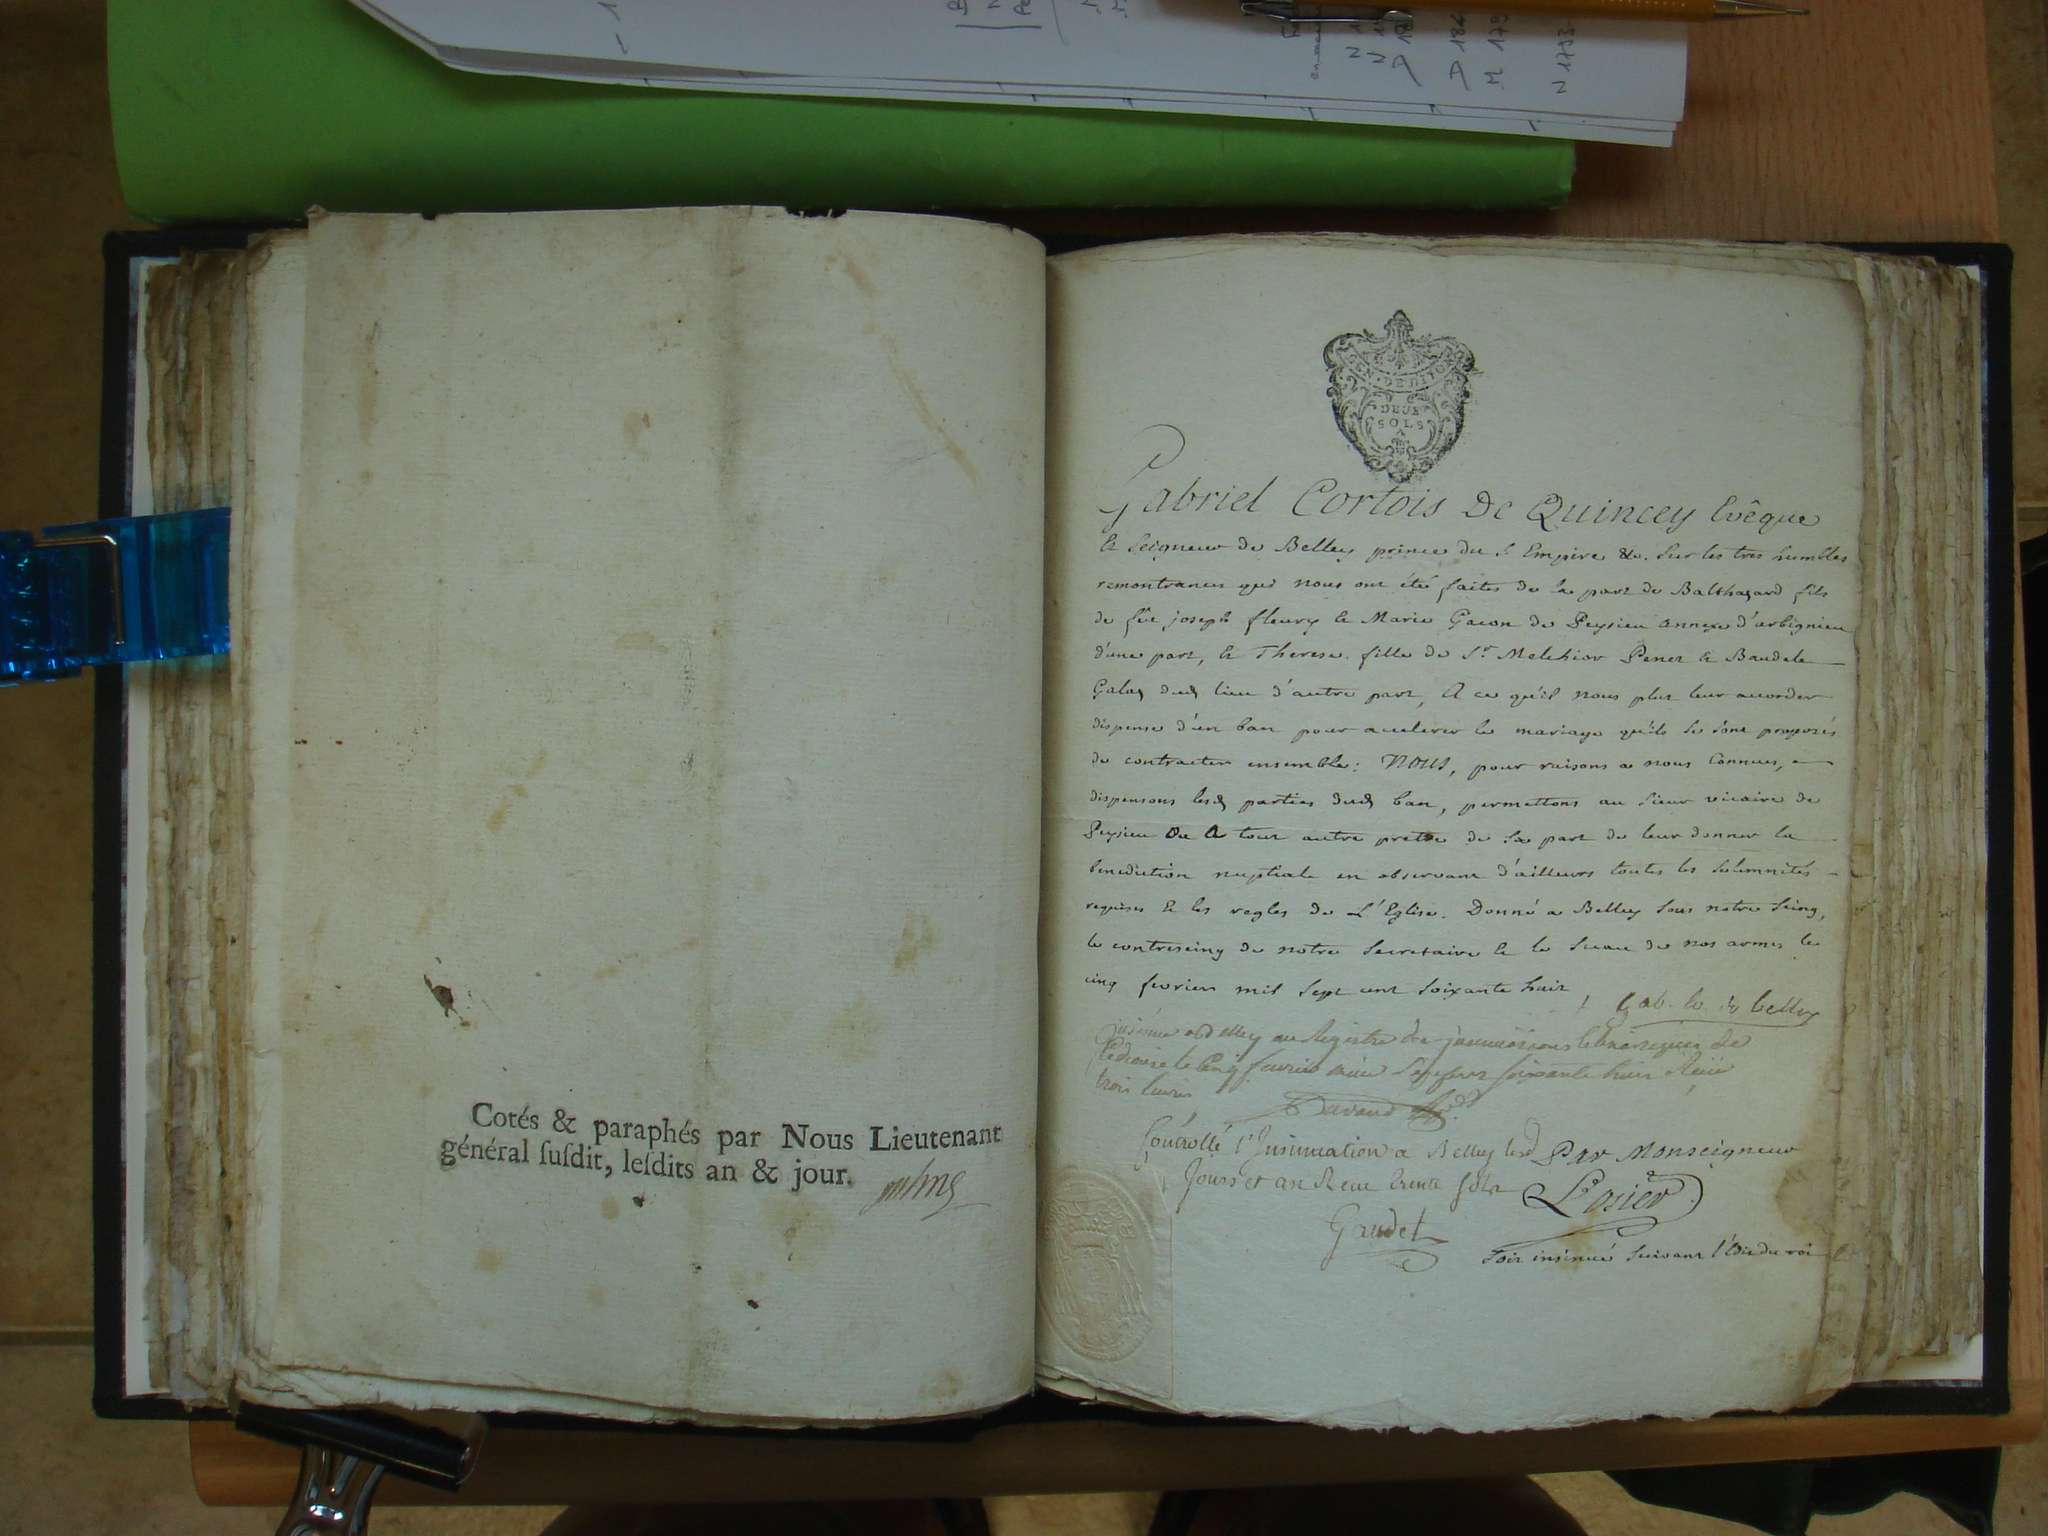 N 1793
Cotés & paraphés par Nous Lieutenant
général ſuſdit, leſdits an & jour.
GEN. DE DIJON
DEUX
SOLS
Gabriel Cortois De Quincey Evêque
& Seigneur de Belley prince du St Empire &c. Sur les tres humbles
remontrances qui nous ont été faites de la part de Balthazard fils
de feu joseph fleury & Marie Gacon de Peysieu annexe d'arbignieu
d'une part, & Therese fille de Sr Melchior Penet & Baudele
Galay dud lieu d'autre part, A ce qu'il nous plut leur accorder
dispense d'un ban pour accelerer le mariage qu'ils se sont proposés
de contracter ensemble: NOUS, pour raisons a nous Connues,
dispensons lesd parties dud ban, permettons au Sieur vicaire de
Peysieu Ou A tout autre pretre de sa part de leur donner la
benediction nuptiale en observant d'ailleurs toutes les solemnités
requises & les regles de L'Eglise. Donné a Belley sous notre seing,
le contreseing de notre Secretaire & le Sceau de nos armes le
cinq fevrier mil sept cent soixante huit
+ Gab. ev. de Belley
insinué a Belley au Registre des insinuations Ecclesiastiques de
le Cinq fevrier mille Sept cent soixante huit Reçu
trois livres
Contrôllé l'Insinuation a Belley lesd
Jours et an Reçu trente sols
Gaudet
Par Monseigneur
Soit insinué suivant l'Edit du roi